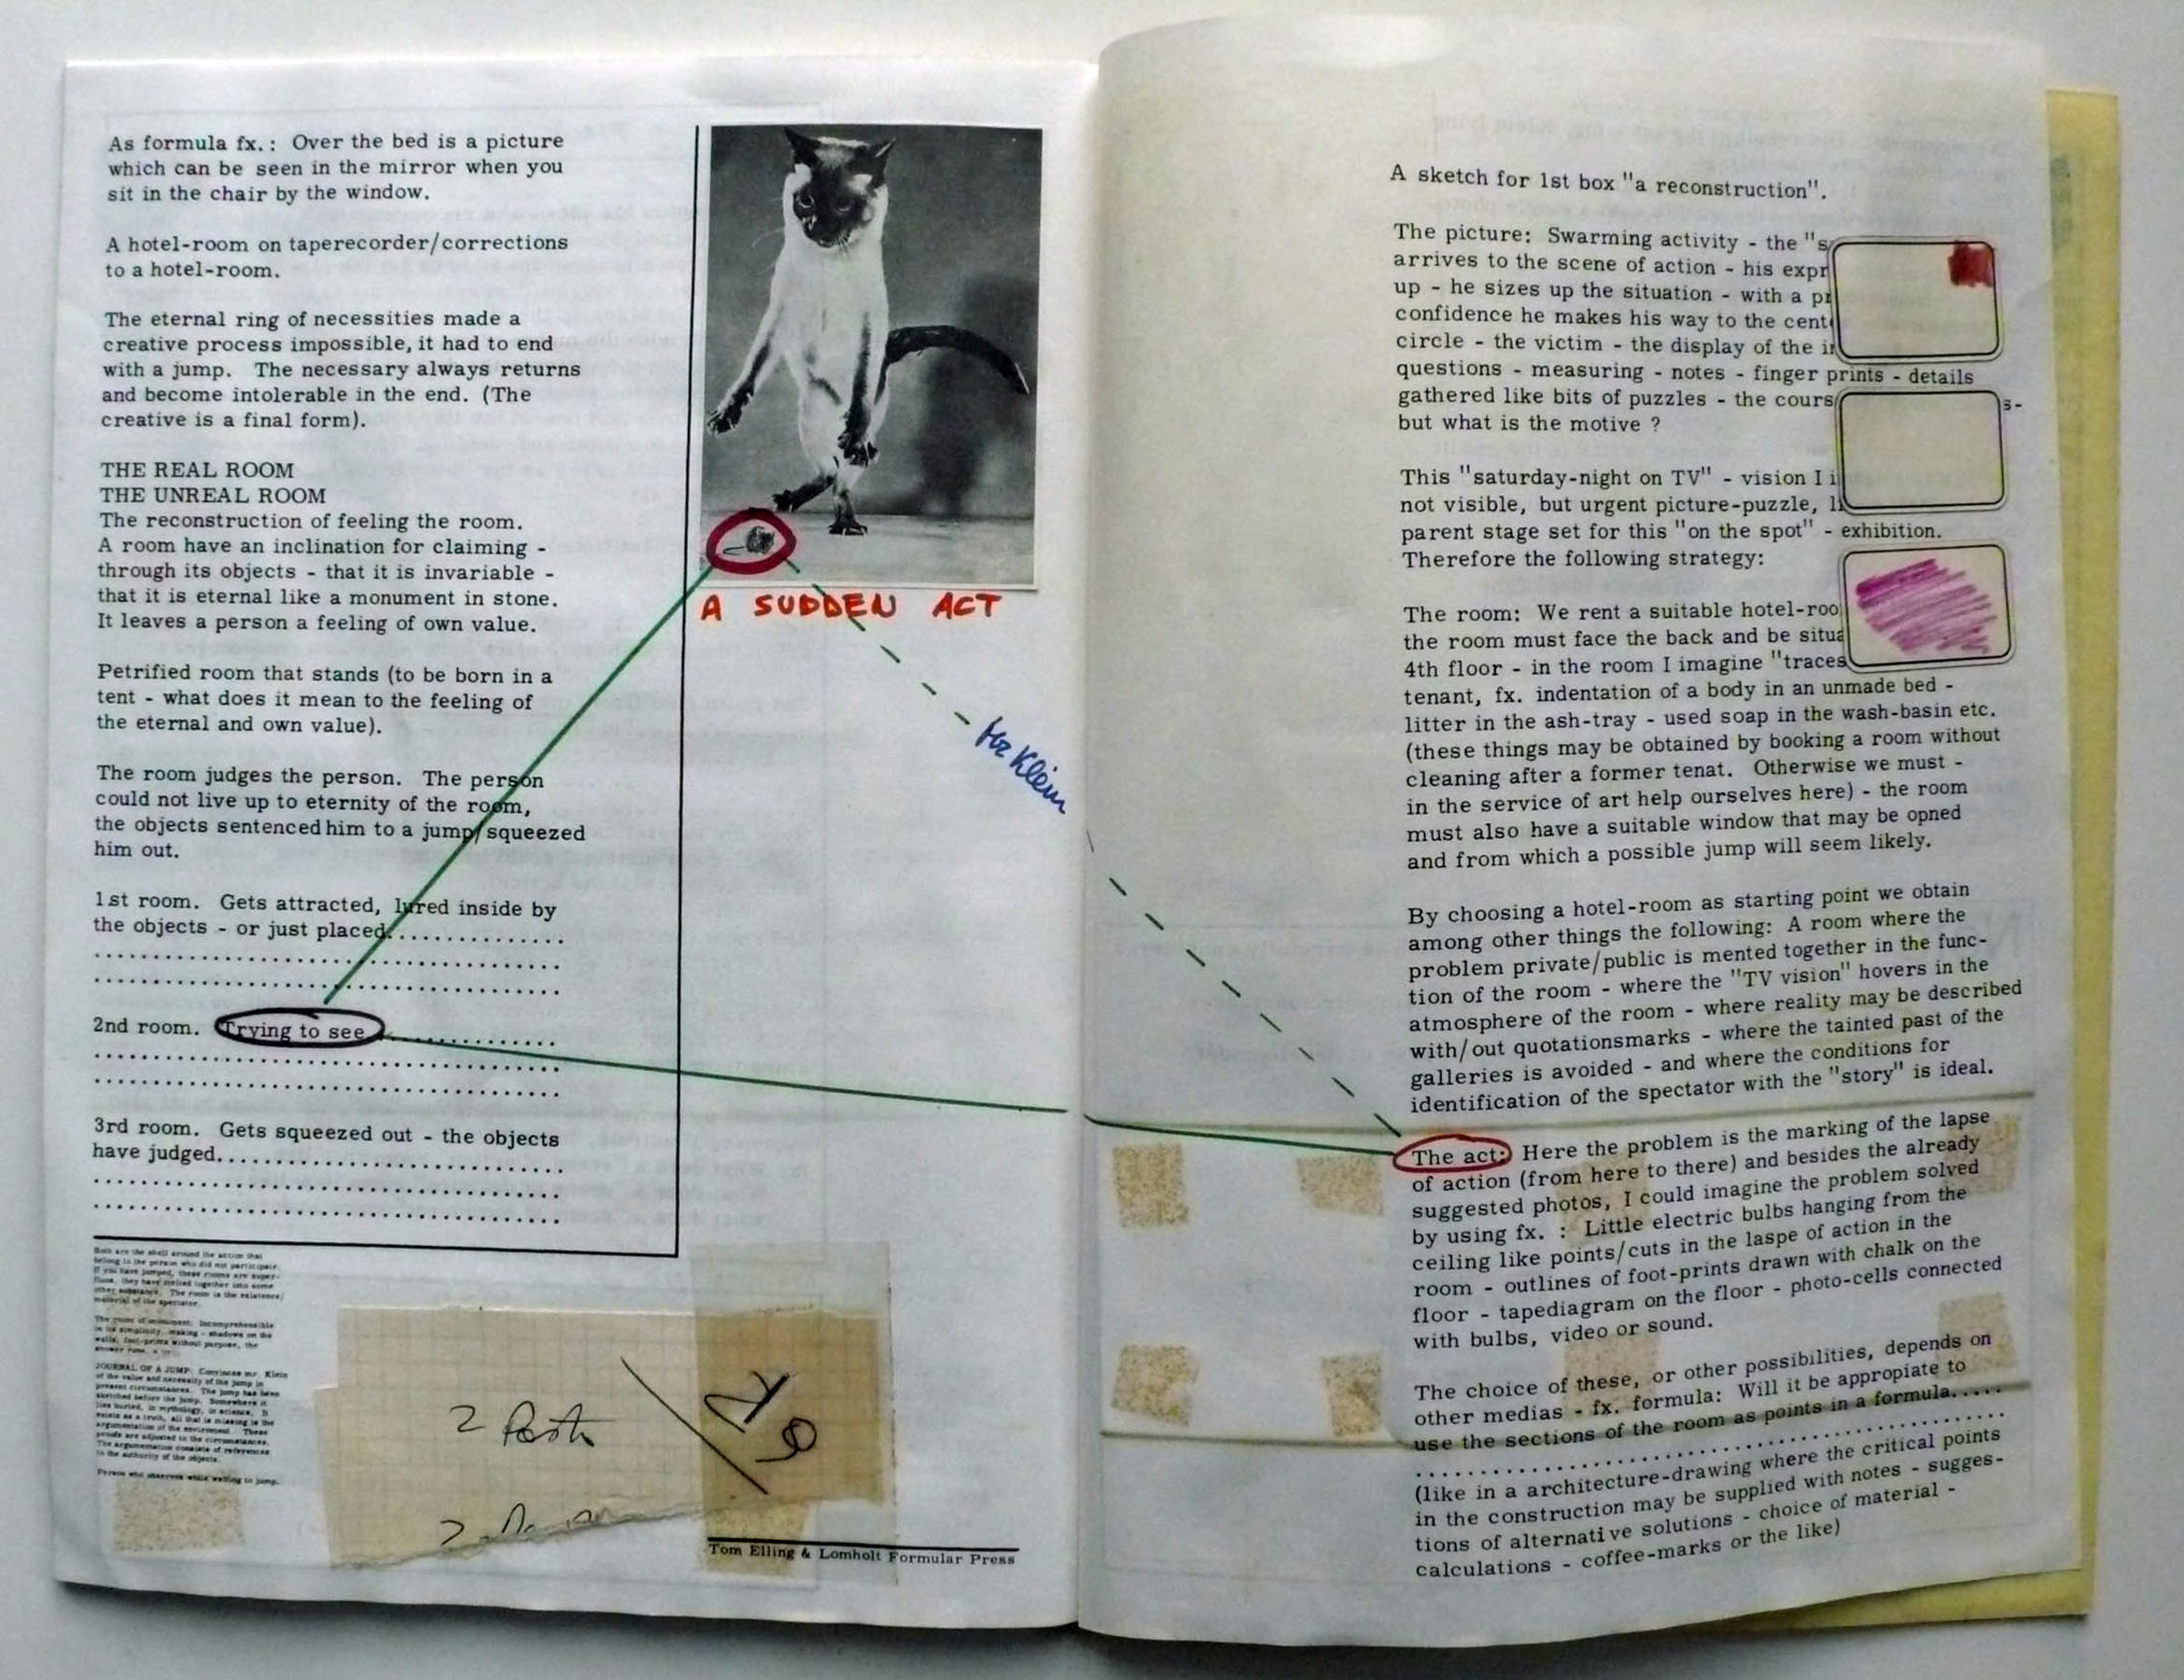 As formula fx.: Over the bed is a picture
which can be seen in the mirror when you
sit in the chair by the window.
A hotel-room on taperecorder/corrections
to a hotel-room.
The eternal ring of necessities made a
creative process impossible, it had to end
with a jump. The necessary always returns
and become intolerable in the end. (The
creative is a final form).
THE REAL ROOM
THE UNREAL ROOM
The reconstruction of feeling the room.
A room have an inclination for claiming -
through its objects - that it is invariable -
that it is eternal like a monument in stone.
It leaves a person a feeling of own value.
Petrified room that stands (to be born in a
tent - what does it mean to the feeling of
the eternal and own value).
The room judges the person. The person
could not live up to eternity of the room,
the objects sentenced him to a jump/squeezed
him out.
1st room. Gets attracted, lured inside by
the objects - or just placed..............
........................................
........................................
2nd room. Trying to see................
........................................
........................................
3rd room. Gets squeezed out - the objects
have judged.............................
........................................
........................................
Both are the shell around the action that
belong to the person who did not participate.
If you have jumped, these rooms are super-
fluous, they have melted together into some
other substance. The room is the existence/
material of the spectator.
The room of monument: Incomprehensible
in its simplicity, making - shadows on the
walls, foot-prints without purpose, the
JOURNAL OF A JUMP: Convinces mr. Klein
of the value and necessity of the jump in
present circumstances. The jump has been
sketched before the jump. Somewhere it
lies buried, in mythology, in science. It
exists as a truth, all that is missing is the
argumentation of the enviroment. These
proofs are adjusted to the circumstances.
The argumentation consists of references
to the authority of the objects.
Person who observes while waiting to jump.
A SUDDEN ACT
Hr Klein
2
Tom Elling & Lomholt Formular Press
A sketch for 1st box "a reconstruction".
The picture: Swarming activity - the "s
arrives to the scene of action - his expr
up - he sizes up the situation - with a pr
confidence he makes his way to the cent
circle - the victim - the display of the i
questions - measuring - notes - finger prints - details
gathered like bits of puzzles - the cours s-
but what is the motive ?
This "saturday-night on TV" - vision I i
not visible, but urgent picture-puzzle, l
parent stage set for this "on the spot" - exhibition.
Therefore the following strategy:
The room: We rent a suitable hotel-roo
the room must face the back and be situa
4th floor - in the room I imagine "traces
tenant, fx. indentation of a body in an unmade bed -
litter in the ash-tray - used soap in the wash-basin etc.
(these things may be obtained by booking a room without
cleaning after a former tenat. Otherwise we must -
in the service of art help ourselves here) - the room
must also have a suitable window that may be opned
and from which a possible jump will seem likely.
By choosing a hotel-room as starting point we obtain
among other things the following: A room where the
problem private/public is mented together in the func-
tion of the room - where the "TV vision" hovers in the
atmosphere of the room - where reality may be described
with/out quotationsmarks - where the tainted past of the
galleries is avoided - and where the conditions for
identification of the spectator with the "story" is ideal.
The act: Here the problem is the marking of the lapse
of action (from here to there) and besides the already
suggested photos, I could imagine the problem solved
by using fx. : Little electric bulbs hanging from the
ceiling like points/cuts in the laspe of action in the
room - outlines of foot-prints drawn with chalk on the
floor - tapediagram on the floor - photo-cells connected
with bulbs, video or sound.
The choice of these, or other possibilities, depends on
other medias - fx. formula: Will it be appropiate to
use the sections of the room as points in a formula.....
..................................................
(like in a architecture-drawing where the critical points
in the construction may be supplied with notes - sugges-
tions of alternative solutions - choice of material -
calculations - coffee-marks or the like)